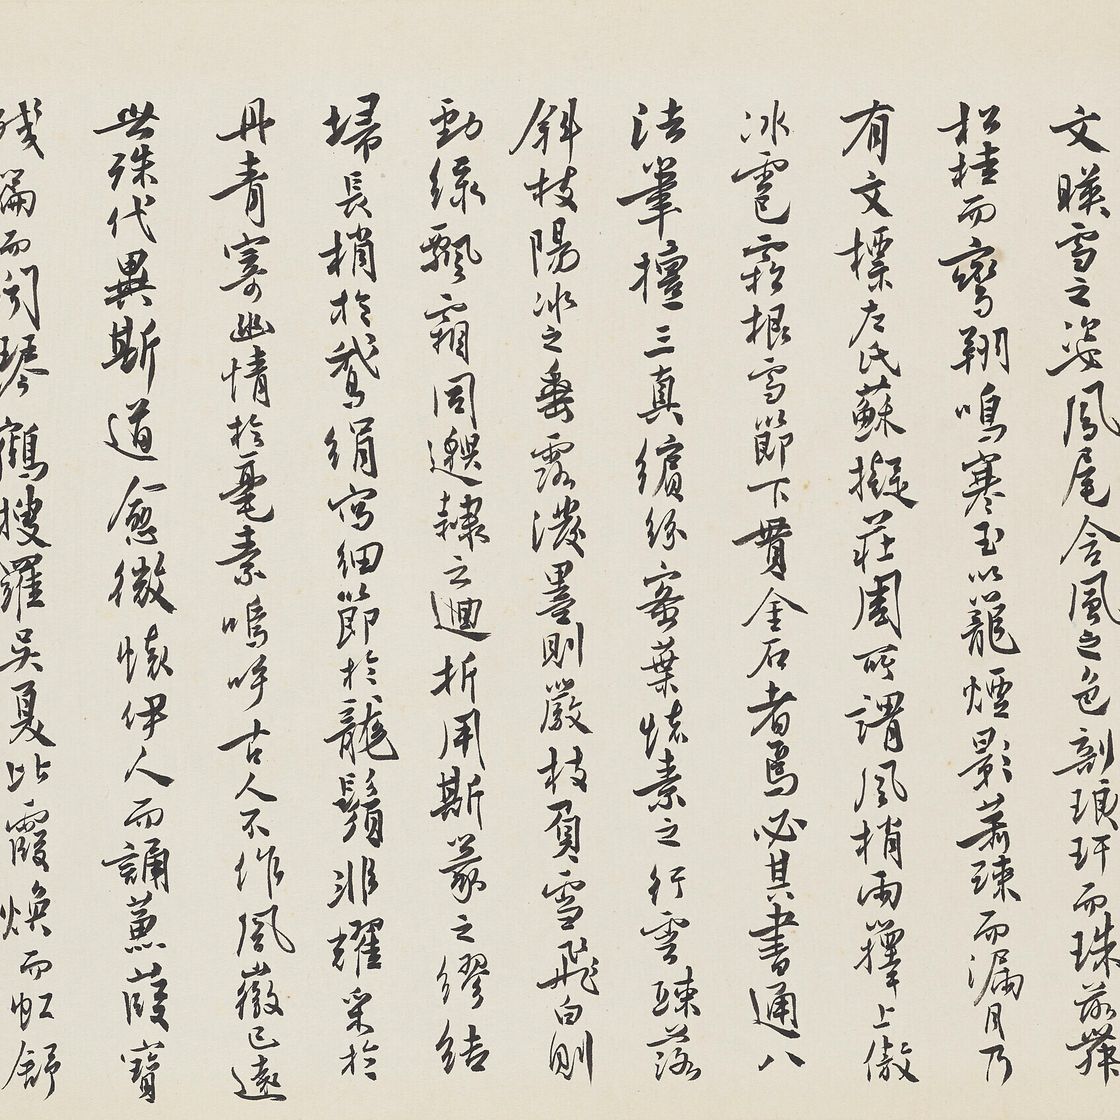 文暎雪之姿鳳尾含風之色剖琅玕而珠蕊舞
松桂而鸞翔鳴寒玉以籠煙影蕭疎而漏月乃
有文標左氏蘇擬莊周所謂風梢雨籜上傲
冰雹霜根雪節下貫金石者焉必其書通八
法筆擅三真繽紛密葉懷素之行雲疎落
斜枝陽冰之垂露潑墨則嚴枝負雪飛白則
勁篠飄霜同邈隸之迴折用斯篆之繆結
埽長梢於鵝絹寫細節於龍鬚非耀采於
丹青寄幽情於毫素嗚呼古人不作風徽已遠
世殊代異斯道愈微懷伊人而誦蒹葭寶
殘篇而列琴鶴搜羅吳夏比霞煥而虹舒